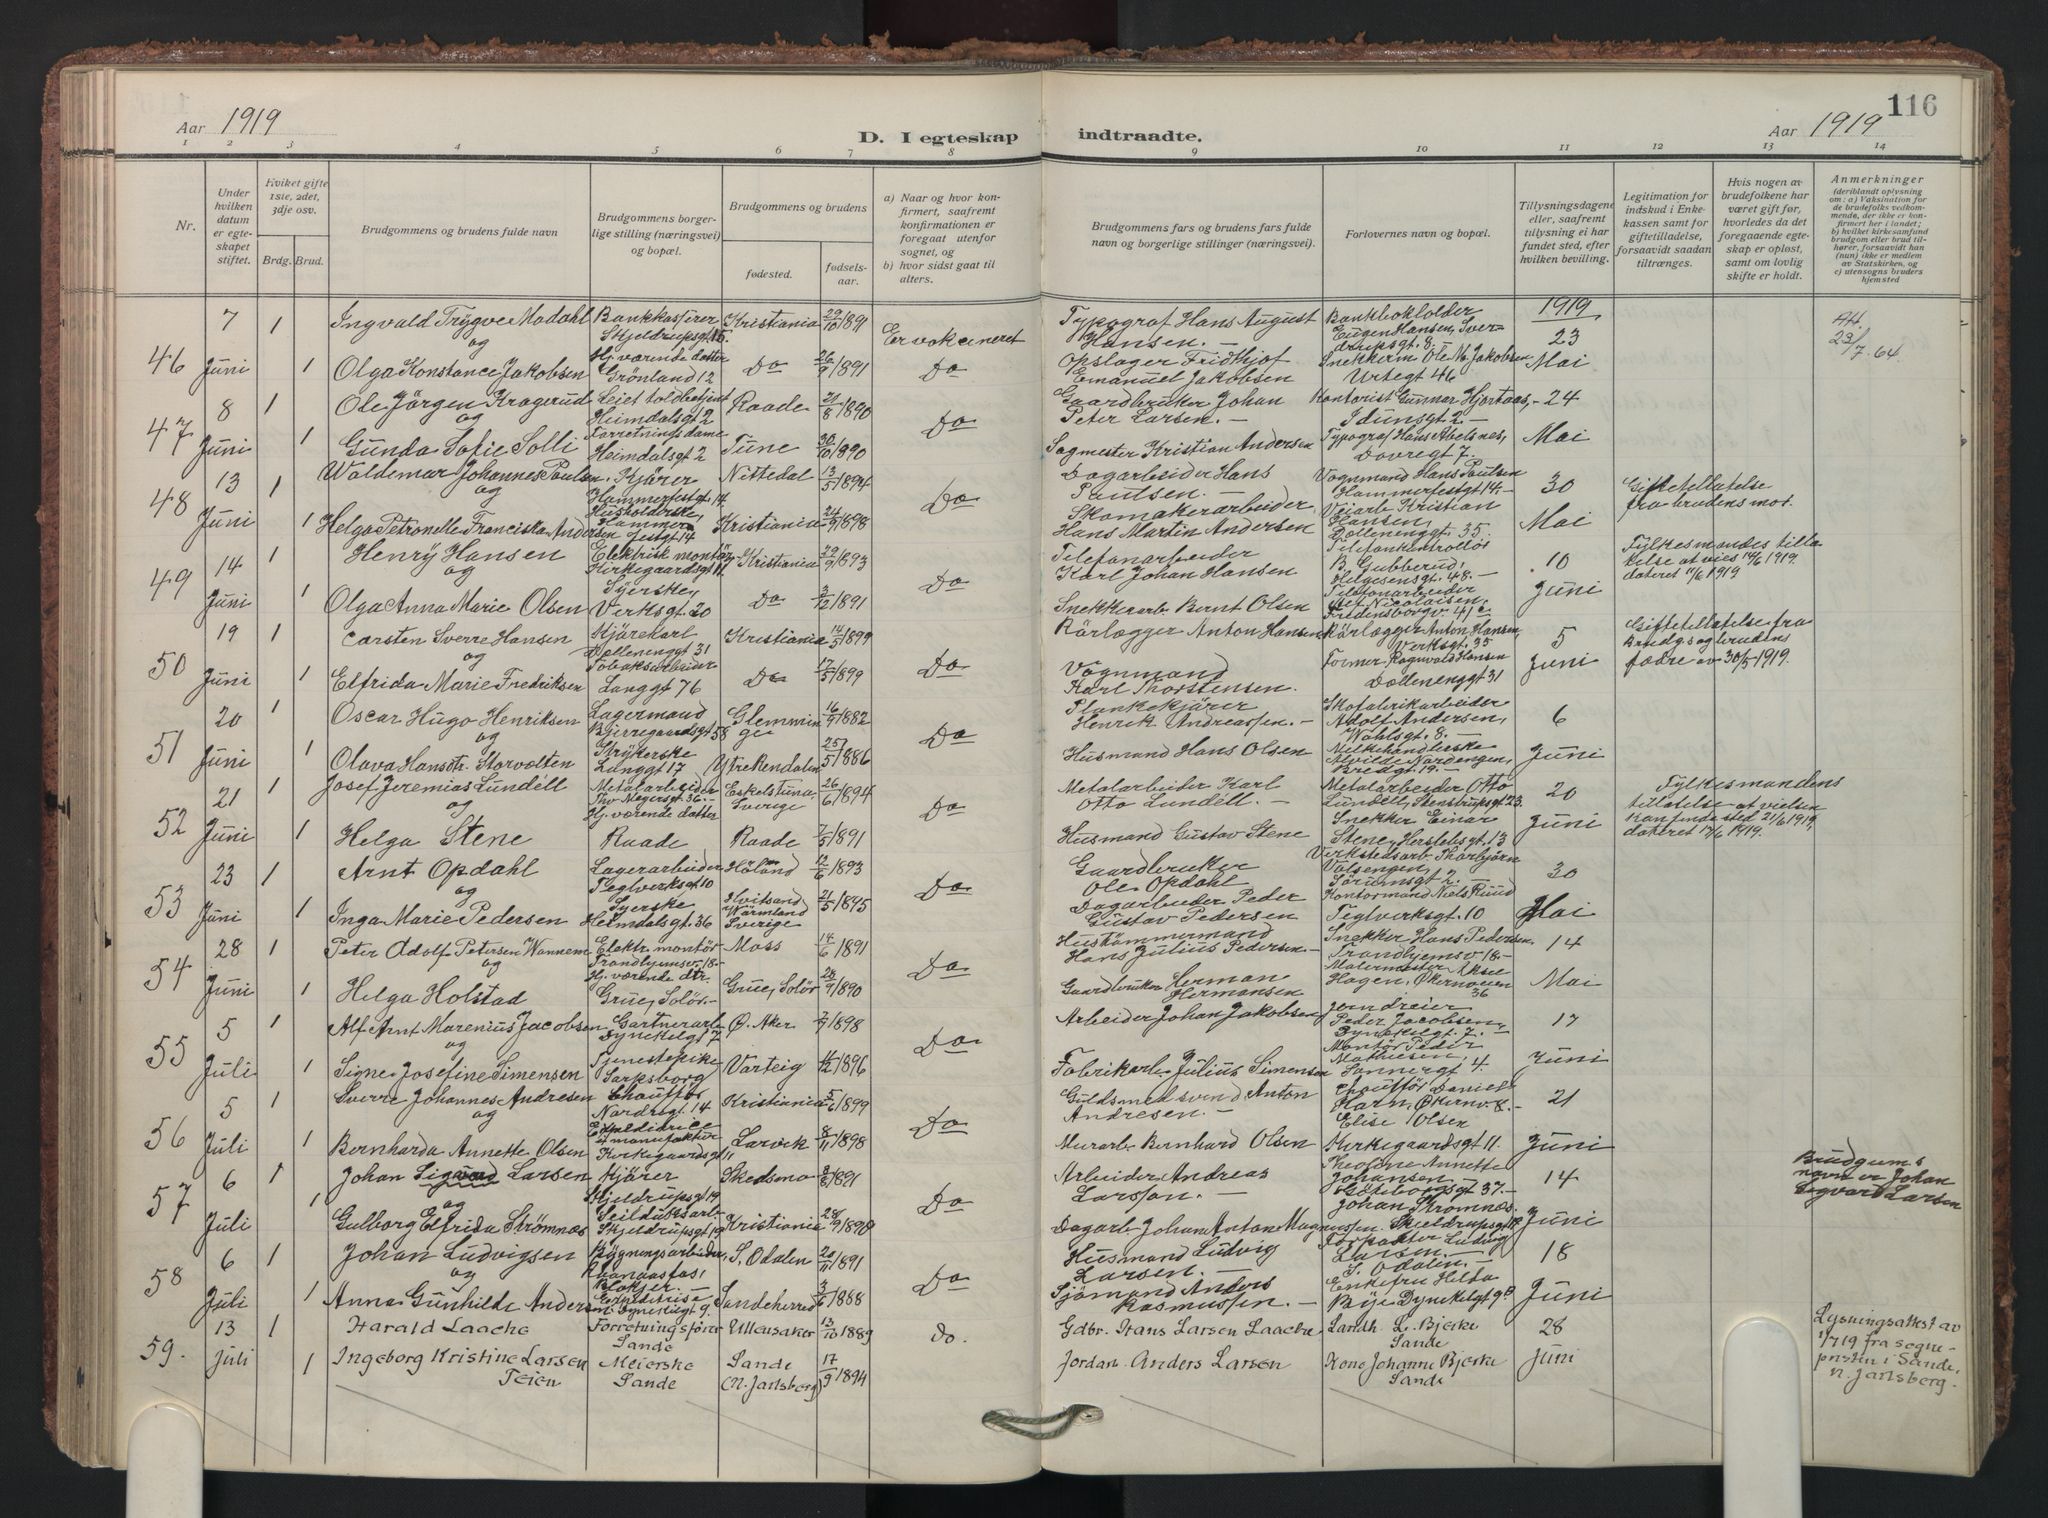 116
Aar 1919
D. I egteskap indtraadte.
Aar 1919
1 2 3 4 5 6 7 8 9 10 11 12 13 14
Nr.
Under hvilken datum er egteskapet stiftet.
Hviket gifte 1ste, 2det, 3dje osv.
Brdg. Brud.
Brudgommens og brudens fulde navn
Brudgommens borgerlige stilling (næringsvei) og bopæl.
Brudgommens og brudens
fødested.
fødselsaar.
a) Naar og hvor konfirmert, saafremt konfirmationen er foregaat utenfor sognet, og
b) hvor sidst gaat til alters.
Brudgommens fars og brudens fars fulde navn og borgerlige stillinger (næringsvei).
Forlovernes navn og bopæl.
Tillysningsdagene eller, saafremt tillysning ei har fundet sted, efter hvilken bevilling.
Legitimation for indskud i Enkekassen samt for giftetilladelse, forsaavidt saadan tiltrænges.
Hvis nogen av brudefolkene har været gift før, hvorledes da det foregaaende egteskap er opløst, samt om lovlig skifte er holdt.
Anmerkninger
(deriblandt oplysning om: a) Vaksination for de brudefolks vedkommende, der ikke er konfirmert her i landet; b) hvilket kirkesamfund brudgom eller brud tilhører, forsaavidt han (hun) ikke er medlem av Statskirken, og c) utensogns bruders hjemsted
46
7 Juni 1 Ingvald Trygve Modahl Bankkasserer Skjeldrupsgt 15. Kristiania 29/10 1891 Er vakcineret Typograf Hans August Hansen. — Bankbokholder Eugen Hansen, Sverdrupsgt. 8. — 1919 23 Mai
og
1 Olga Konstance Jakobsen Hj. værende datter Grönland 12 Do 26/9 1891 Do Opslager Fridthjof Emanuel Jakobsen Snekkerm Ole N. Jakobsen Urtegt 46
AH. 29/7.64
47
8 Juni 1 Ole Jörgen Kragerud Leiet toldbetjent Heimdalsgt 2 Raade 21/8 1890 Do Gaardbruker Johan Peter Larsen. — Kontorist Gunnar Hjortaas, Idunsgt 2. — 24 Mai
og
1 Gunda Sofie Solli Forretningsdame Heimdalsgt 2 Tune 30/10 1890 Sagmester Kristian Andersen Typograf Hans Abelsnes, Dovregt 7.
48
13 Juni 1 Waldemar Johannes Paulsen Kjörer Hammerfestgt. 14. Nittedal 13/5 1894 Do Dagarbeider Hans Paulsen. — Vognmand Hans Paulsen Hammerfestgt 14. — 30 Mai Giftetillatelse fra brudens mor.
og
1 Helga Petronelle Franciska Andersen Husholderske, Hammerfestgt 14 Kristiania 24/9 1898 Skomakerarbeider Hans Martin Andersen Veiarb Kristian Hansen, Dællenenggt. 35.
49
14 Juni 1 Henry Hansen Elektrisk montör Kirkegaardsgt 11 Kristiania 29/9 1893 Do Telefonarbeider Karl Johan Hansen Telefonkontrollör B. Gubberud, Helgesensgt. 48. — 10 Juni Fylkesmandes tilladelse at vies 14/6 1919. dateret 11/6 1919
og
1 Olga Anna Marie Olsen Syerske, Verksgt. 20 Do 3/12 1891 Snekkerarb. Bernt Olsen Telefonarbeider Alf Nicolaisen, Fredensborgv. 41 c
50
19 Juni 1 Carsten Sverre Hansen Kjörekarl Dællenenggt 31 Kristiania 14/5 1899 Do Rörlægger Anton Hansen Rörlægger Anton Hansen, Verksgt. 35 5 Juni Giftetillatelse fra Brudgs og brudens fædre av 30/5 1919.
og
1 Elfrida Marie Fredriksen Tobaksarbeider Langgt 76 Do 17/5 1899 Vognmand Karl Thorstensen. Former Ragnvald Hansen Dællenenggt 31
51
20 Juni 1 Oscar Hugo Henriksen Lagermand Bjerregaardsgt 58 Glemminge 16/9 1882 Do Plankekjörer Henrik Andreassen. — Skofabrikarbeider Adolf Andersen, Wahlsgt. 8. — 6 Juni
og
1 Olava Hansdtr. Storvolten Strykerske Langgt 17 Y. Rendalen 25/5 1886 Husmand Hans Olsen Melkehandlerske Alvilde Nordengen, Bredgt. 19. —
52
21 Juni 1 Josef Jeremias Lundéll Metalarbeider Thv Meyersgt 36. — Eskelstuna, Sverige 26/6 1894 Do Metalarbeider Karl Otto Lundell. — Metalarbeider Otto Lundell, Stenstrupsgt 23. 20 Juni Fylkesmandens tillatelse at vielsen kan finde sted 21/6 1919, dateret 17/6 1919.
og
1 Helga Stene Hj. værende datter Raade Raade 7/5 1891 Husmand Gustav Stene Snekker Einar Stene, Herslebsgt. 13
53
23 Juni 1 Arnt Opdahl Lagerarbeider Teglverksgt 10 Höland 12/6 1893 Do Gaardbruker Ole Opdahl Verkstedsarb. Thorbjörn Volsengen, Sörumsgt 2. — 30 Mai
og
1 Inga Marie Pedersen Syerske Heimdalsgt. 36 Hvitsand Wärmland Sverige 21/5 1895 Dagarbeider Peder Gustav Pedersen Kontormand Niels Ruud Teglverksgt. 10
54
28 Juni 1 Peter Adolf Petersen Wannem Elektr. montör Trondhjemsv. 18. — Moss 14/6 1891 Do Hustömmermand Hans Julius Pedersen. — Snekker Hans Pedersen. Trondhjemsv 18. — 14 Mai
og
1 Helga Holstad Hj. værende dtr. Grue, Solör. — Grue, Solör 28/9 1890 Gaardbruker Herman Hermansen Malermester Aksel Hagen, Økernveien 36
55
5 Juli 1 Alf Arnt Marenius Jacobsen Gartnerarb. Dynekilgt 7 Ø. Aker 7/9 1898 Do Arbeider Johan Jakobsen Jerndreier Peder Jacobsen, Dynekilgt. 7. — 17 Juni
og
1 Signe Josefine Simensen Tjenestepike Sarpsborg Varteig 11/12 1896 Fabrikarb. Julius Simensen Montör Peder Mathiesen, Sannergt 4.
56
5 Juli 1 Sverre Johannes Andresen Chauffør Nordregt. 14 Kristiania 5/6 1899 Do Guldsmedsvend Anton Andresen. — Chauffør Daniel Harn, Økernv. 8. — 21 Juni
og
1 Bernharda Annette Olsen Expeditrice i manufaktur Kirkegaardsgt 11 Larvik 8/11 1898 Murarb. Bernhard Olsen Elise Olsen Kirkegaardsgt 11.
57
6 Juli 1 Johan Sigvard Larsen Kjörer Skjeldrupsgt 19 Skedsmo 3/6 1891 Do Arbeider Andreas Larsson. — Theoline Annette Johansen, Göteborgsgt 37. — 14 Juni Brudgums navn er Johan Segvart Larsen
og
1 Gulborg Elfrida Strömnæs Seilduksarb. Skjeldrupsgt 19 Kristiania 28/9 1898 Dagarb. Johan Antone Magnussen. Johan Strömnæs. Skjeldrupsgt 19
58
6 Juli 1 Johan Ludvigsen Bygningsarbeider, Raanaasfos, Blakjer. — S. Odalen 20/11 1891 Do Husmand Ludvig Larsen. — Forpakter Ludvig Larsen. — S. Odalen. — 18 Juni
og
1 Anna Gunhilde Andersen Expeditrise Dynekilgt 9. Sandeherred 3/6 1888 Sjömand Anders Rasmussen. — Enkefru Hilda Bye, Dynekilgt 9 b
59.
13 Juli 1 Harald Laache Forretningsfører Sande Ullensaker 13/10 1889 Do. Gdbr. Hans Larsen Laache Landh. L. Bjerke Sande 28 Juni Lysningsattest av 1/7 19 fra sognepresten i Sande, N. Jarlsberg.
1 Ingeborg Kristine Larsen Teien Meierske Sande Sande (N. Jarlsberg) 17/9 1894 Jordarb. Anders Larsen Kone Johanne Bjerke Sande